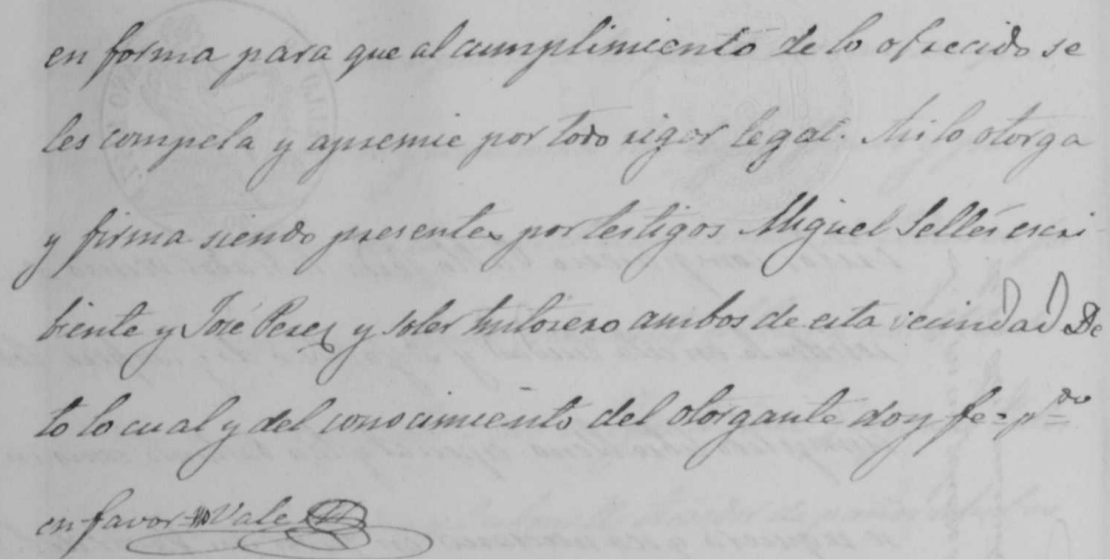 en forma para que al cumplimiento de lo ofrecido se
les compela y apremie por todo rigor legal. Asi lo otorga
y firma siendo presentes por testigos Miguel Sellés escri
biente y José Perez y Soler ambos de esta vecindad De
to lo cual y del conocimiento del otorgante doy fe =
en favor = Vale